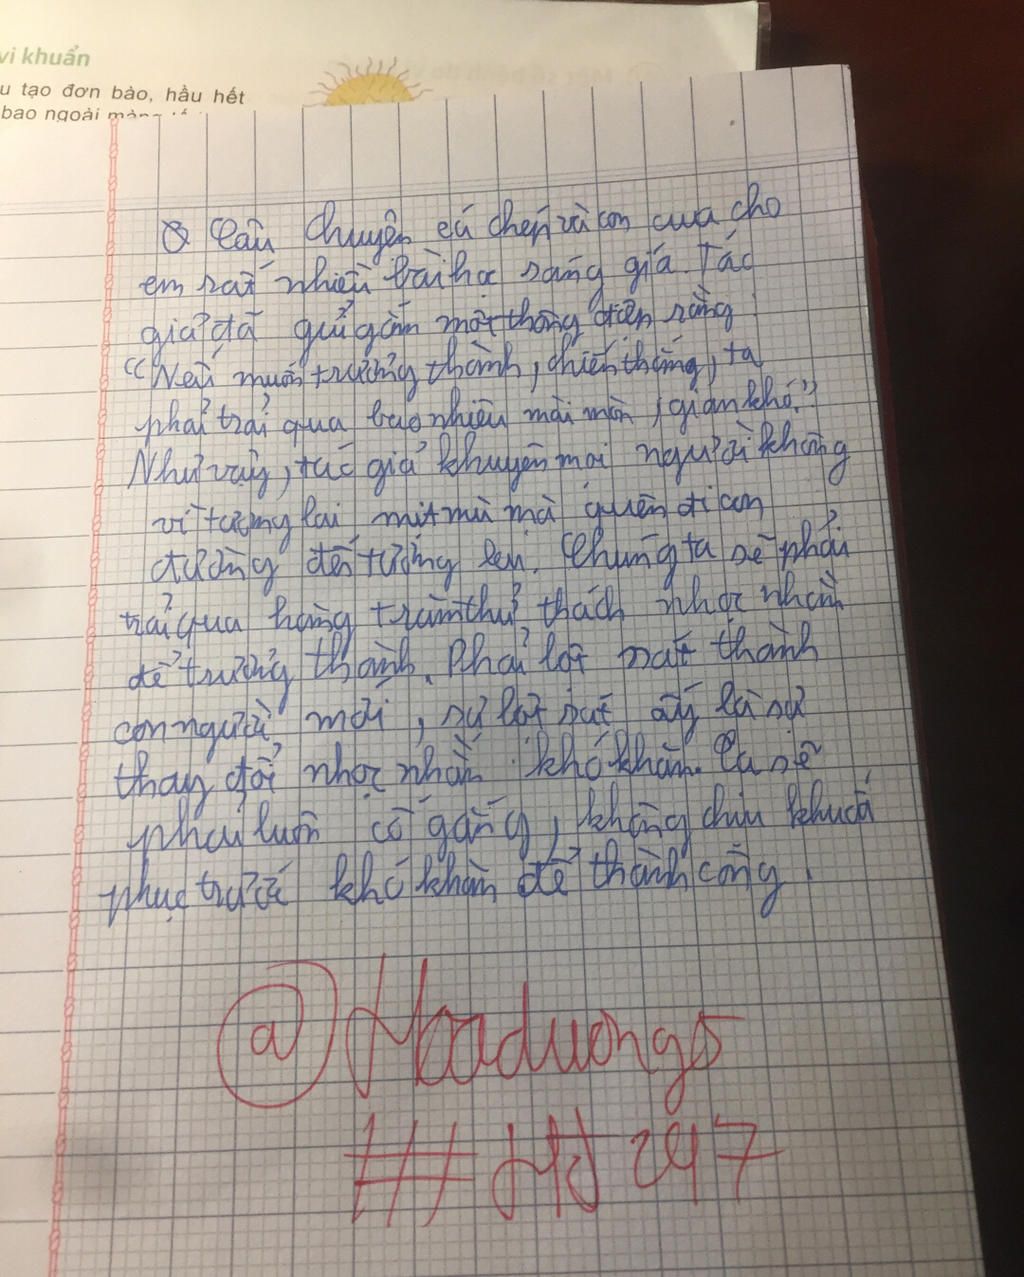 vi khuẩn
u tạo đơn bào, hầu hết
bao ngoài
Câu chuyện cá chép và con cua cho
em rất nhiều bài học sáng giá. Tác
giả đã gửi gắm một thông điệp rằng
"Nếu muốn trưởng thành, chiến thắng, ta
phải trải qua bao nhiêu mài mòn, gian khó."
Như vậy, tác giả khuyên mọi người không
vì tương lai mịt mù mà quên đi con
đường đến tương lai. Chúng ta sẽ phải
trải qua hàng trăm thử thách nhọc nhằn
để trưởng thành. Phải lột xác thành
con người mới, sự lột xác ấy là sự
thay đổi nhọc nhằn khó khăn. Ta sẽ
phải luôn cố gắng, không chịu khuất
phục trước khó khăn để thành công.
@Hoaduong5
#HJ247